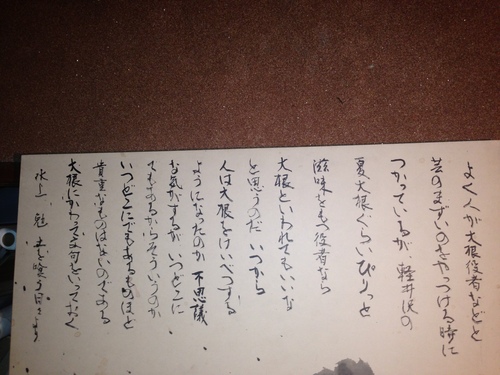 よく人が大根役者などと
芸のまずいのをやっつける時に
つかっているが、軽井沢の
夏大根ぐらいぴりっと
滋味をもつ役者なら
大根といわれてもいいな
と思うのだ いつから
人は大根をけいべつする
ようになったのか 不思議
な気がするが いつどこに
でもあるからそういうのか
いつどこにでもあるものほど
貴重なものはないのである
大根にかわって一言いっておく
水上 勉 土を喰う日々より